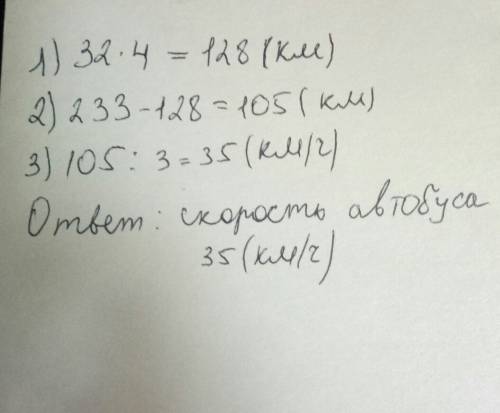 1) 32·4 = 128 (км)
2) 233-128=105 (км)
3) 105 : 3 = 35 (км/ч)
Ответ: скорость автобуса
35 (км/ч)